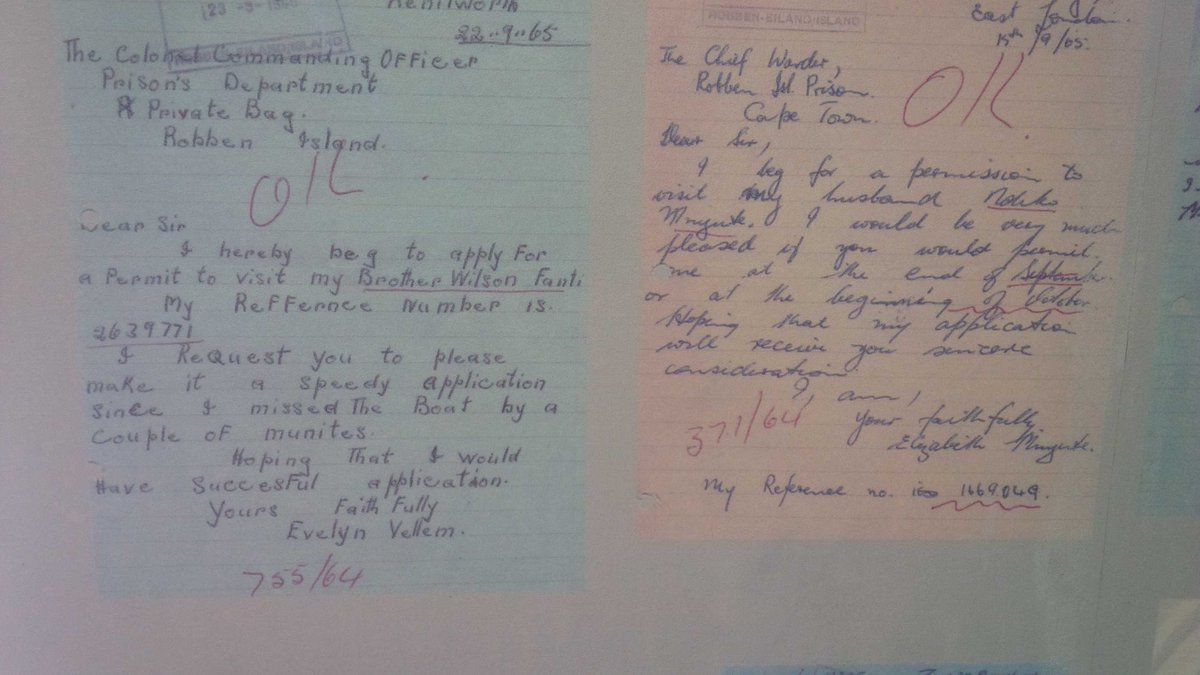 23 -9-
ROBBEN-EILAND/ISLAND
Kenilworth
22..9..65
The Colonel Commanding OFFicer
Prison's Department
Private Bag.
Robben Island.
OK
Dear Sir
I hereby beg to apply For
a Permit to visit my Brother Wilson Fanti.
My RefFernce Number is.
2639771
I ReQuest you to please
make it a speedy application
since I missed The Boat by a
Couple of munites.
Hoping That I would
Have Succesful application.
Yours FaithFully
Evelyn Vellem.
755/64
ROBBEN-EILAND/ISLAND
East London.
15th/9/65.
The Chief Warder,
Robben Isl. Prison.
Cape Town.
OK.
Dear Sir,
I beg for a permission to
visit my husband Ndiko
Mnyute. I would be very much
pleased if you would permit
me at the end of September
or at the beginning of October.
Hoping that my application
will receive you sincere
consideration.
I, am,
Your faithfully,
Elizabeth Mnyute.
371/64
My Reference no. 1669.049.